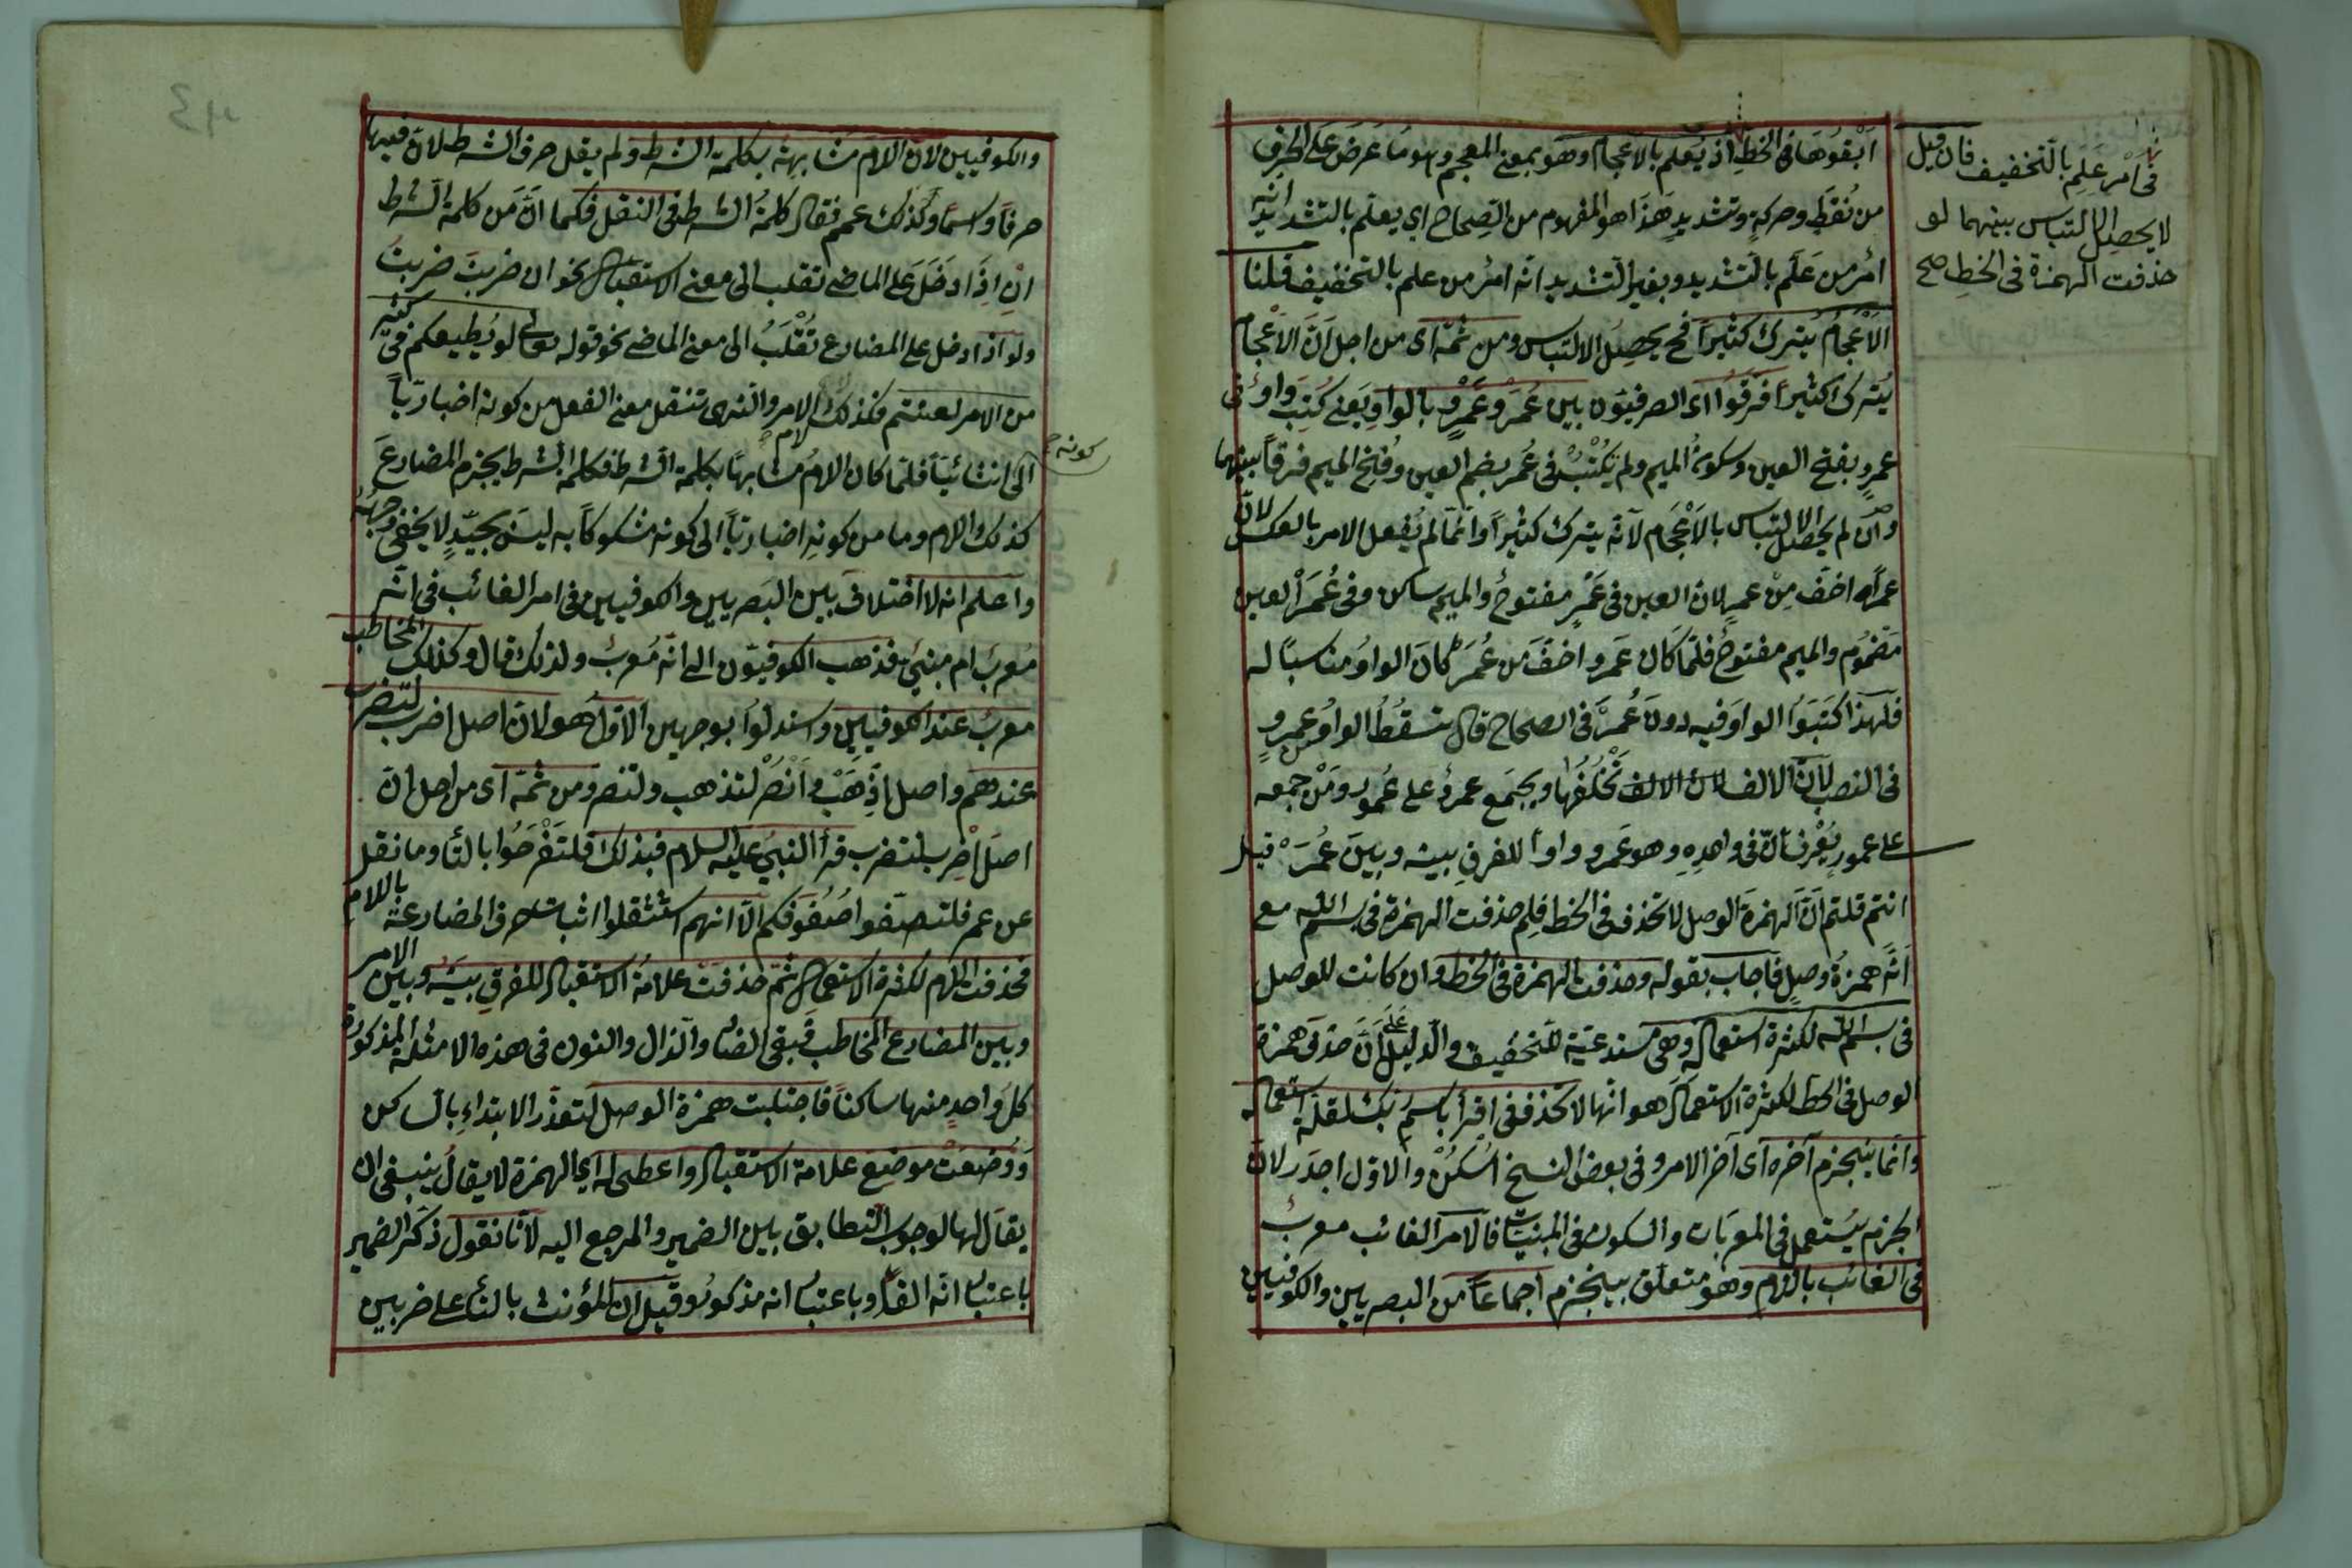 ابقوها فى الخط اذ يعلم بالاعجام وهو بمعنى المعجم وهو ما عرض على الحرف
من نقط وحركة وتشديد هذا هو المفهوم من الصحاح اي يعلم بالتشديد انه
امر من علّم بالتشديد وبغير التشديد انه امر من علم بالتخفيف قلنا
الاعجام يترك كثيرا فح يحصل الالتباس ومن ثمّة اى من اجل ان الاعجام
يترك كثيرا فرقوا اى الصرفيون بين عُمَر وعَمْرٍو بالواو يعنى كتب واو فى
عمرٍو بفتح العين وسكون الميم ولم يكتب فى عُمر بضم العين وفتح الميم فرقاً بينهما
وان لم يحصل الالتباس بالاعجام لانه يترك كثيراً وانما لم يفعل الامر بالعكس لان
عمراً اخف من عمر لان العين فى عَمْرٍ مفتوح والميم ساكن وفى عُمَر العين
مضموم والميم مفتوح فلما كان عمرو اخف من عُمَر كان الواو مناسباً له
فلهذا كتبوا الواو فيه دون عُمَر فى الصحاح قال تسقط الواو من عمرٍو
فى النصب لان الالف تخلفها ويجمع عمرو على عمور ومن جمعه
على عمور يعرف ان فى واحده وهو عمرو واوا للفرق بينه وبين عُمَر قيل
انتم قلتم ان الهمزة الوصل لا تحذف فى الخط فلم حذفت الهمزة فى بسم الله مع
انه همزة وصل فاجاب بقوله وحذفت الهمزة فى الخط وان كانت للوصل
فى بسم الله لكثرة استعماله وهى مستدعية للتخفيف والدليل على ان حذف همزة
الوصل فى الخط لكثرة الاستعمال هو انها لا تحذف فى اقرأ باسم ربك لقلة استعماله
وانما ينجزم آخره اى آخر الامر وفى بعض النسخ اسكن والاول اجدر لان
الجزم يستعمل فى المعربات والسكون فى المبنيات فالامر الغائب معرب
فى الغائب باللام وهو متعلق بينجزم اجماعاً من البصريين والكوفيين
فى امر علم بالتخفيف فان قيل
لا يحصل الالتباس بينهما لو
حذفت الهمزة فى الخط صح
والكوفيين لان اللام مشابهة بكلمة الشرط ولم يقل حرف الشرط لان فيها
حرفاً واسماً وكذلك عمم فقال كلمة الشرط فى النقل فكما ان من كلمة الشرط
ان اذا دخل على الماضى تقلب الى معنى الاستقبال نحو ان ضربتَ ضربتُ
ولو اذا دخل على المضارع تقلب الى معنى الماضى نحو قوله تعالى لو يطيعكم فى كثير
من الامر لعنتم فكذلك لام الامر والنهى تنقل معنى الفعل من كونه اخبارياً
الى انشائيّاً فلما كان اللام مشابهاً بكلمة الشرط فكلمة الشرط يجزم المضارع
كونه
كذلك اللام وما من كونه اخبارياً الى كونه مشكوكاً به ليس بجيّد لا يخفى وجهه
واعلم انه لا اختلاف بين البصريين والكوفيين فى امر الغائب فى انه
معرب ام مبنىّ فذهب الكوفيّون الى انه معرب ولذلك قال وكذلك المخاطب
معرب عند الكوفيين واستدلوا بوجهين الاول هو لان اصل اضرب لتضرب
عندهم واصل اذهب وانصر لتذهب ولتنصر ومن ثمة اى من اجل ان
اصل اضرب لتضرب قرأ النبي عليه السلام فبذلك فلتفرحوا بالتاء وما نقل
عن عمر فلتصفّوا صفوفكم الا انهم استثقلوا اثبات حرف المضارعة باللام
فحذفت اللام لكثرة الاستعمال ثم حذفت علامة الاستقبال للفرق بينه وبين الامر
وبين المضارع المخاطب فبقى الضاد والذال والنون فى هذه الامثلة المذكورة
كل واحد منها ساكناً فاجتلبت همزة الوصل لتعذر الابتداء بالساكن
ووضعت موضع علامة الاستقبال واعطى له اي الهمزة لا يقال ينبغى ان
يقال لها لوجوب التطابق بين الضمير والمرجع اليه لانا نقول ذكر الضمير
باعتبار انه الف او باعتبار انه مذكور وقيل ان المؤنث بالتاء على ضربين